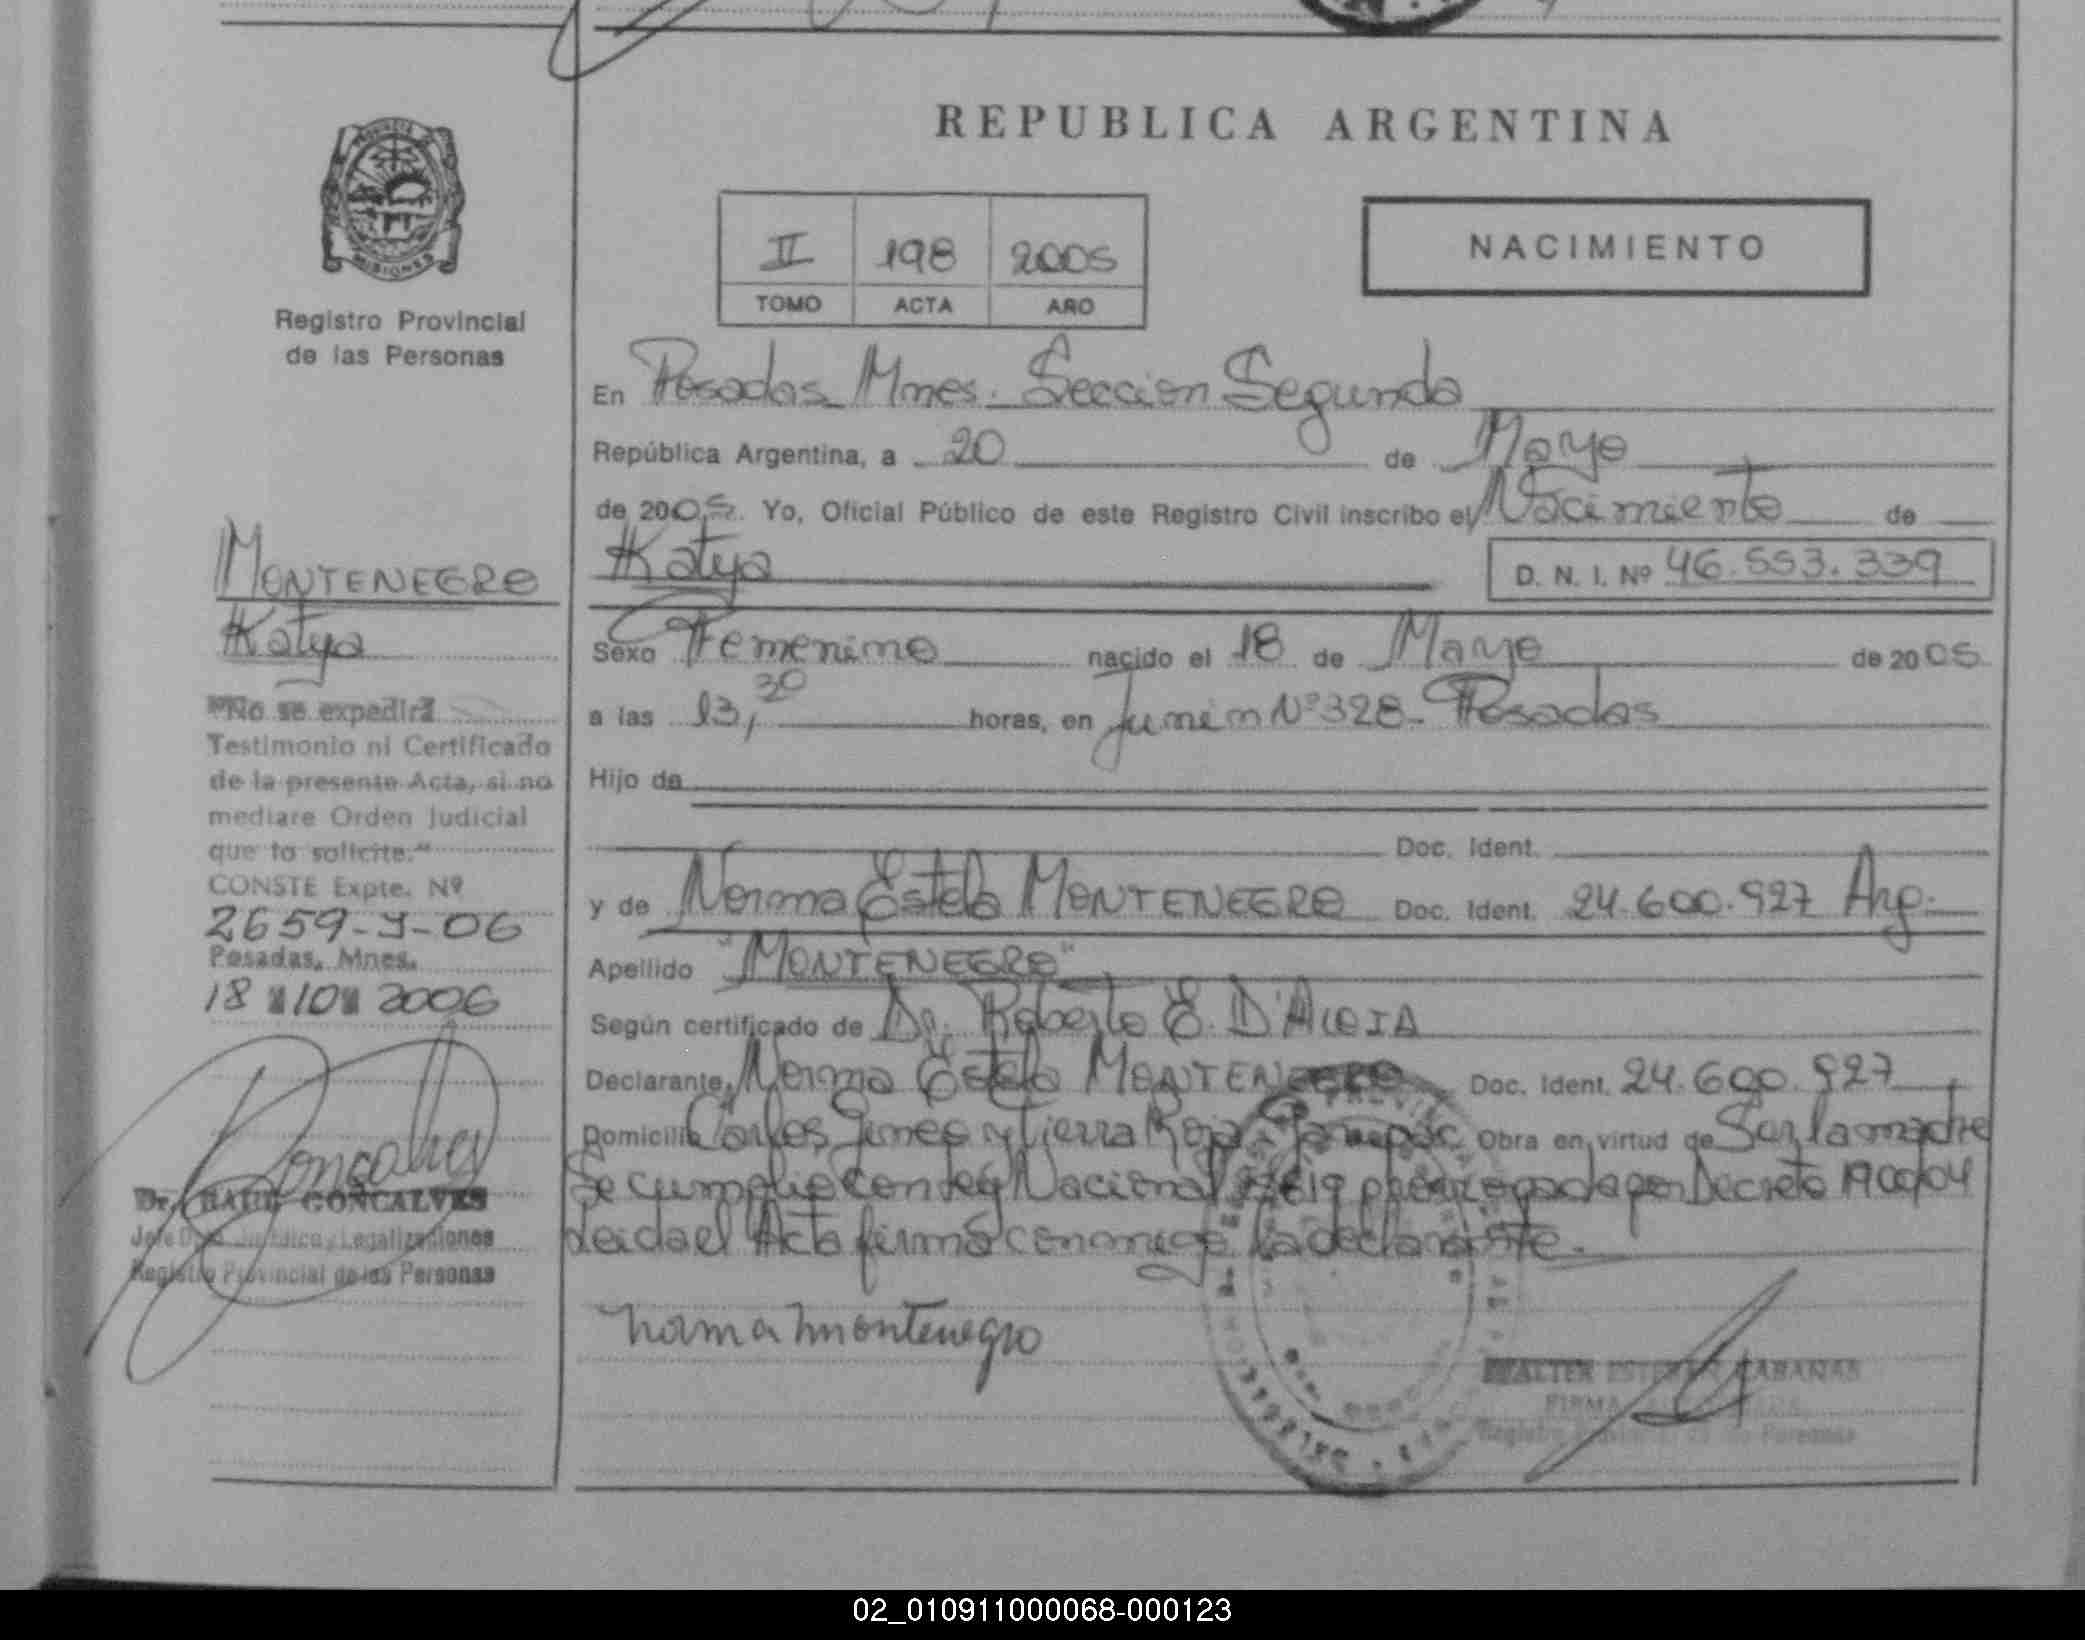 REPUBLICA ARGENTINA
PROVINCIA
MISIONES
Registro Provincial
de las Personas
II 198 2005
TOMO ACTA AÑO
NACIMIENTO
En Posadas Mnes. Sección Segunda
República Argentina, a 20 de Mayo
de 2005. Yo, Oficial Público de este Registro Civil inscribo el Nacimiento de
Katya
D. N. I. Nº 46.553.339
Sexo Femenino nacido el 18 de Mayo de 2005
a las 13,30 horas, en Junín Nº 328 - Posadas
Hijo de
Doc. Ident.
y de Norma Estela MONTENEGRO Doc. Ident. 24.600.927 Arg.
Apellido "MONTENEGRO"
Según certificado de Dr. Roberto E. D'ALOIA
Declarante Norma Estela MONTENEGRO Doc. Ident. 24.600.927
Domicilio Carlos Gimeo y Tierra Roja Obra en virtud de Ser la madre
Se cumplio con Ley Nacional prorrogada por Decreto 1900/04
Leida el Acta firmó conmigo la declarante.
Norma Montenegro
WALTER ESTEBAN CABAÑAS
FIRMA
Registro Provincial de las Personas
MONTENEGRO
Katya
"No se expedirá
Testimonio ni Certificado
de la presente Acta, si no
mediare Orden Judicial
que lo solicite."
CONSTE Expte. Nº
2659-J-06
Posadas, Mnes.
18 10 2006
Goncalves
Dr. RAUL GONCALVES
Jefe Dpto. Jurídico y Legalizaciones
Registro Provincial de las Personas
02_010911000068-000123